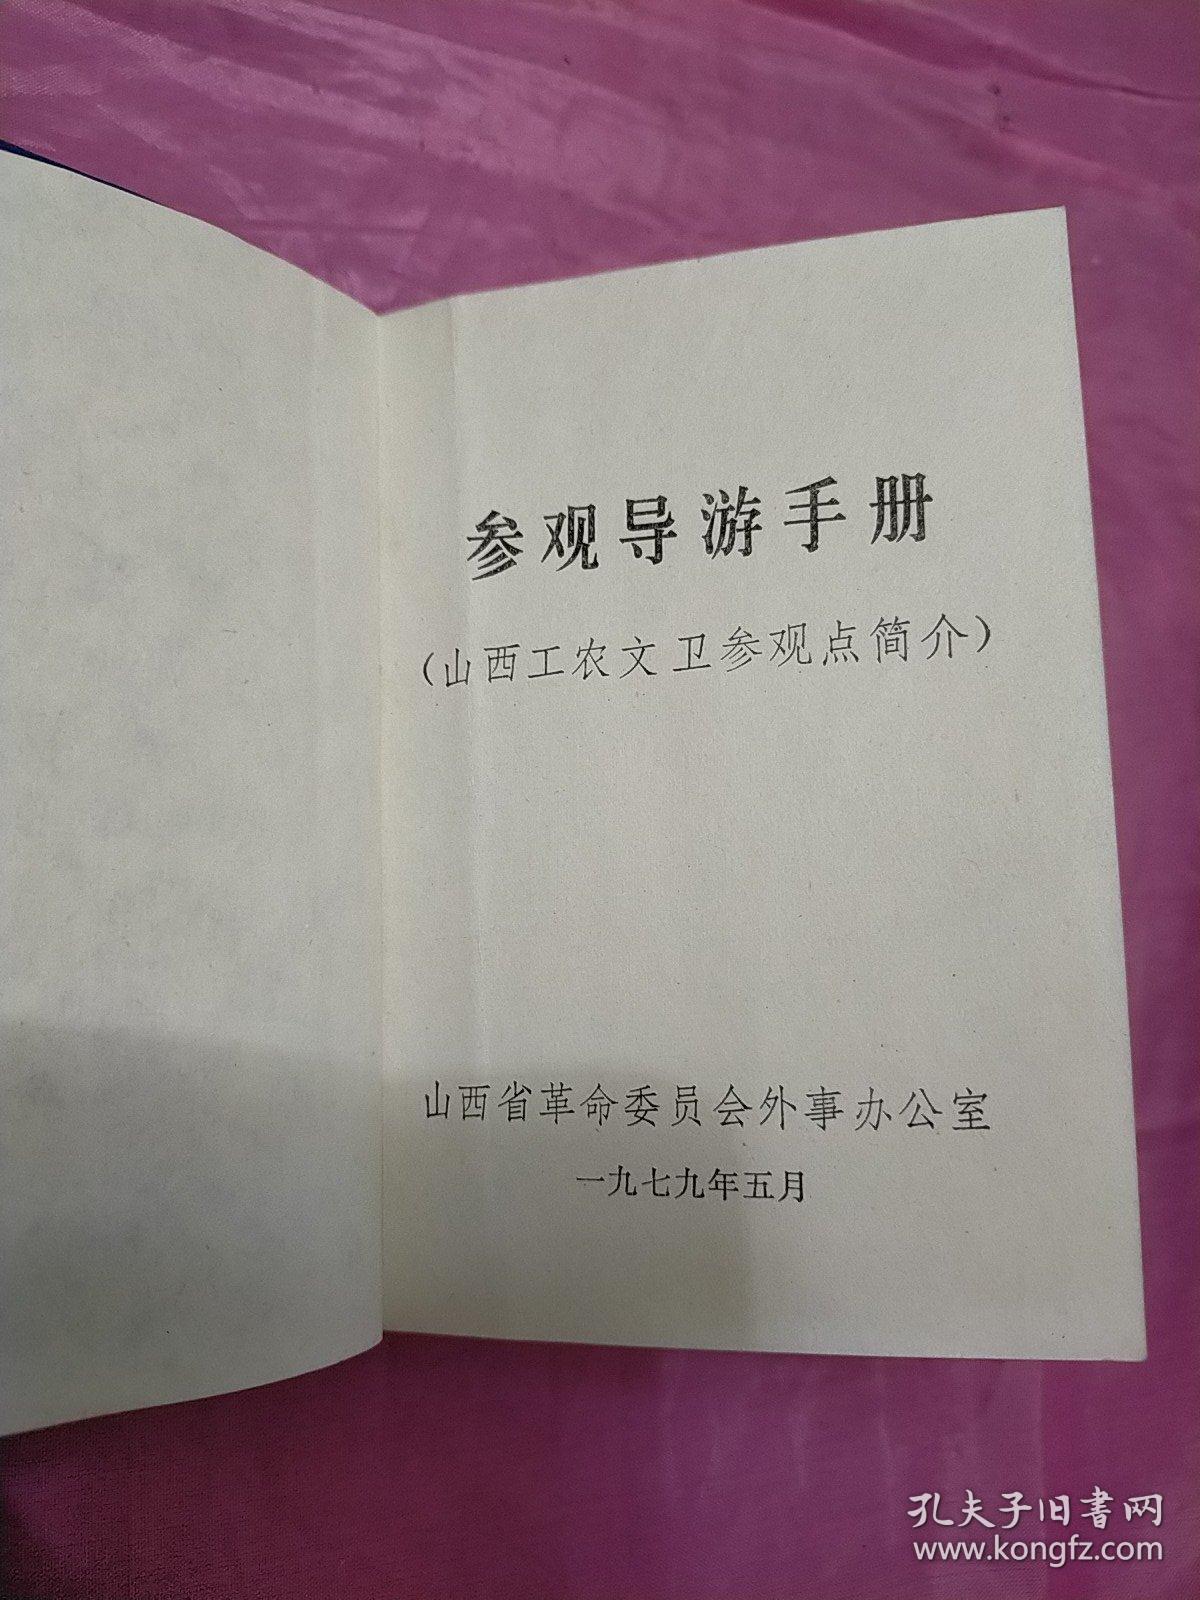 参观导游手册
（山西工农文卫参观点简介）
山西省革命委员会外事办公室
一九七九年五月
孔夫子旧書网
www.kongfz.com